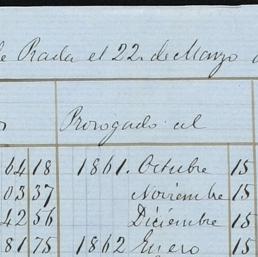 de Rada el 22. de Marzo
Prorogado al
64 18 1861. Octubre 15
03 37 Noviembre 15
42 56 Diciembre 15
81 75 1862 Enero 15